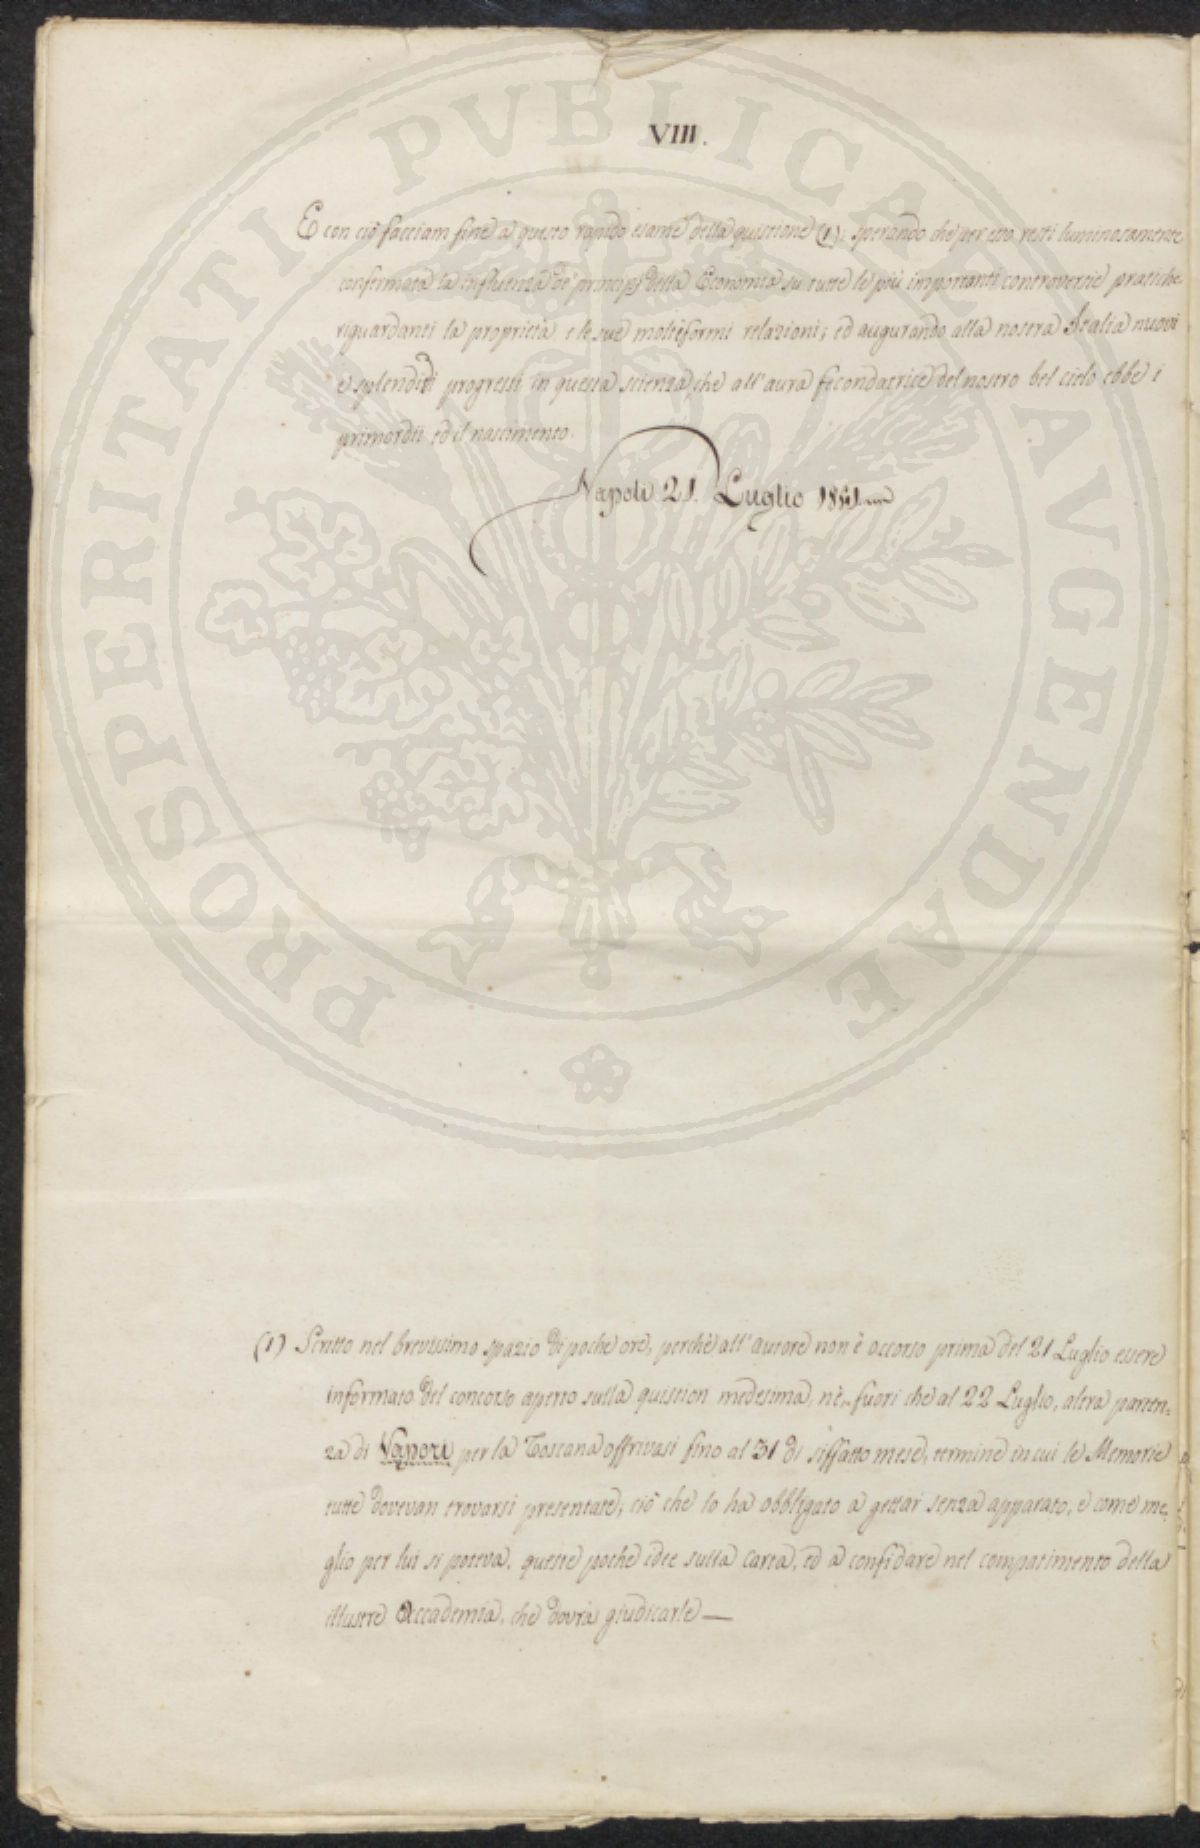 VIII.
E con ciò facciam fine a questo rapido esame della quistione (1); sperando che per esso resti luminosamente
confermata la influenza de' principj della Economia su tutte le più importanti controversie pratiche
riguardanti la proprietà e le sue molteformi relazioni; ed augurando alla nostra Italia nuovi
e splendidi progressi in questa scienza, che all'aura fecondatrice del nostro bel cielo ebbe i
primordii ed il nascimento.
Napoli 21. Luglio
(1) Scritto nel brevissimo spazio di poche ore, perchè all'autore non è occorso prima del 21 Luglio essere
informato del concorso aperto sulla quistion medesima, nè, fuori che al 22 Luglio, altra parten=
za di Vapori per la Toscana offrivasi fino al 31 di siffatto mese, termine in cui le Memorie
tutte dovevan trovarsi presentate; ciò che lo ha obbligato a gettar senza apparato, e come me-
glio per lui si poteva, queste poche idee sulla carta, ed a confidare nel compatimento della
illustre Accademia, che dovrà giudicarle —
PROSPERITATI PVBLICAE AVGENDAE